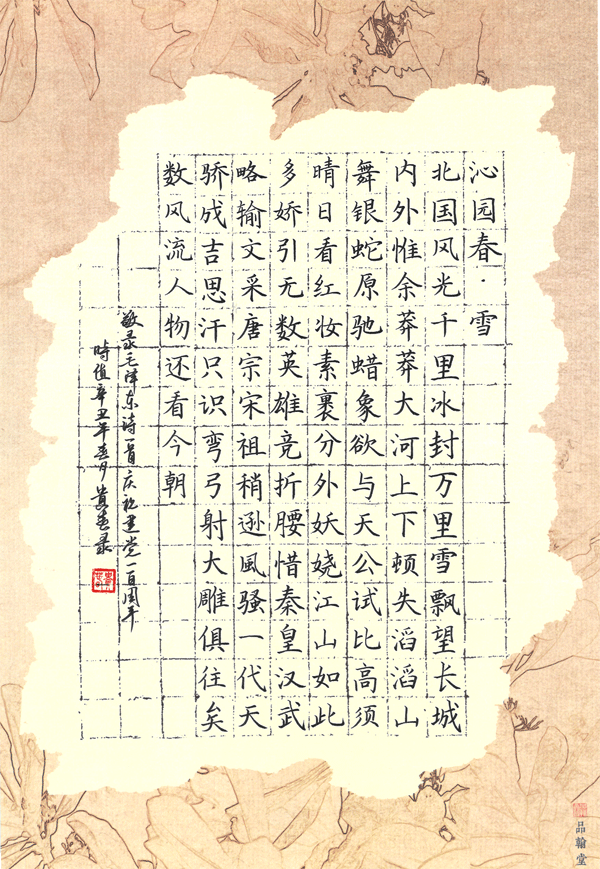 沁园春·雪
北国风光千里冰封万里雪飘望长城
内外惟余莽莽大河上下顿失滔滔山
舞银蛇原驰蜡象欲与天公试比高须
晴日看红妆素裹分外妖娆江山如此
多娇引无数英雄竞折腰惜秦皇汉武
略输文采唐宗宋祖稍逊風骚一代天
骄成吉思汗只识弯弓射大雕俱往矣
数风流人物还看今朝
敬录毛泽东诗一首庆祝建党一百周年
時值辛丑年春月录
品翰堂